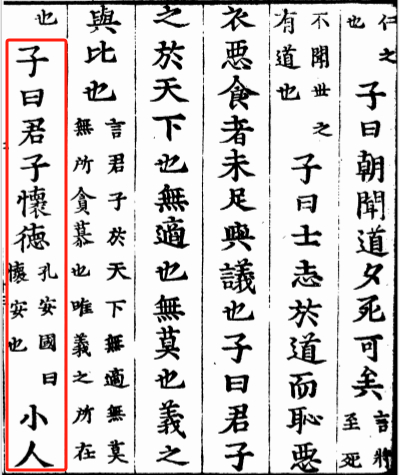 仁之也子曰朝聞道夕死可矣言將至死
不聞世之有道也子曰士志於道而恥惡
衣惡食者未足與議也子曰君子
之於天下也無適也無莫也義之
與比也言君子於天下無適無莫無所貪慕也唯義之所在
也子曰君子懷德孔安國曰懷安也小人